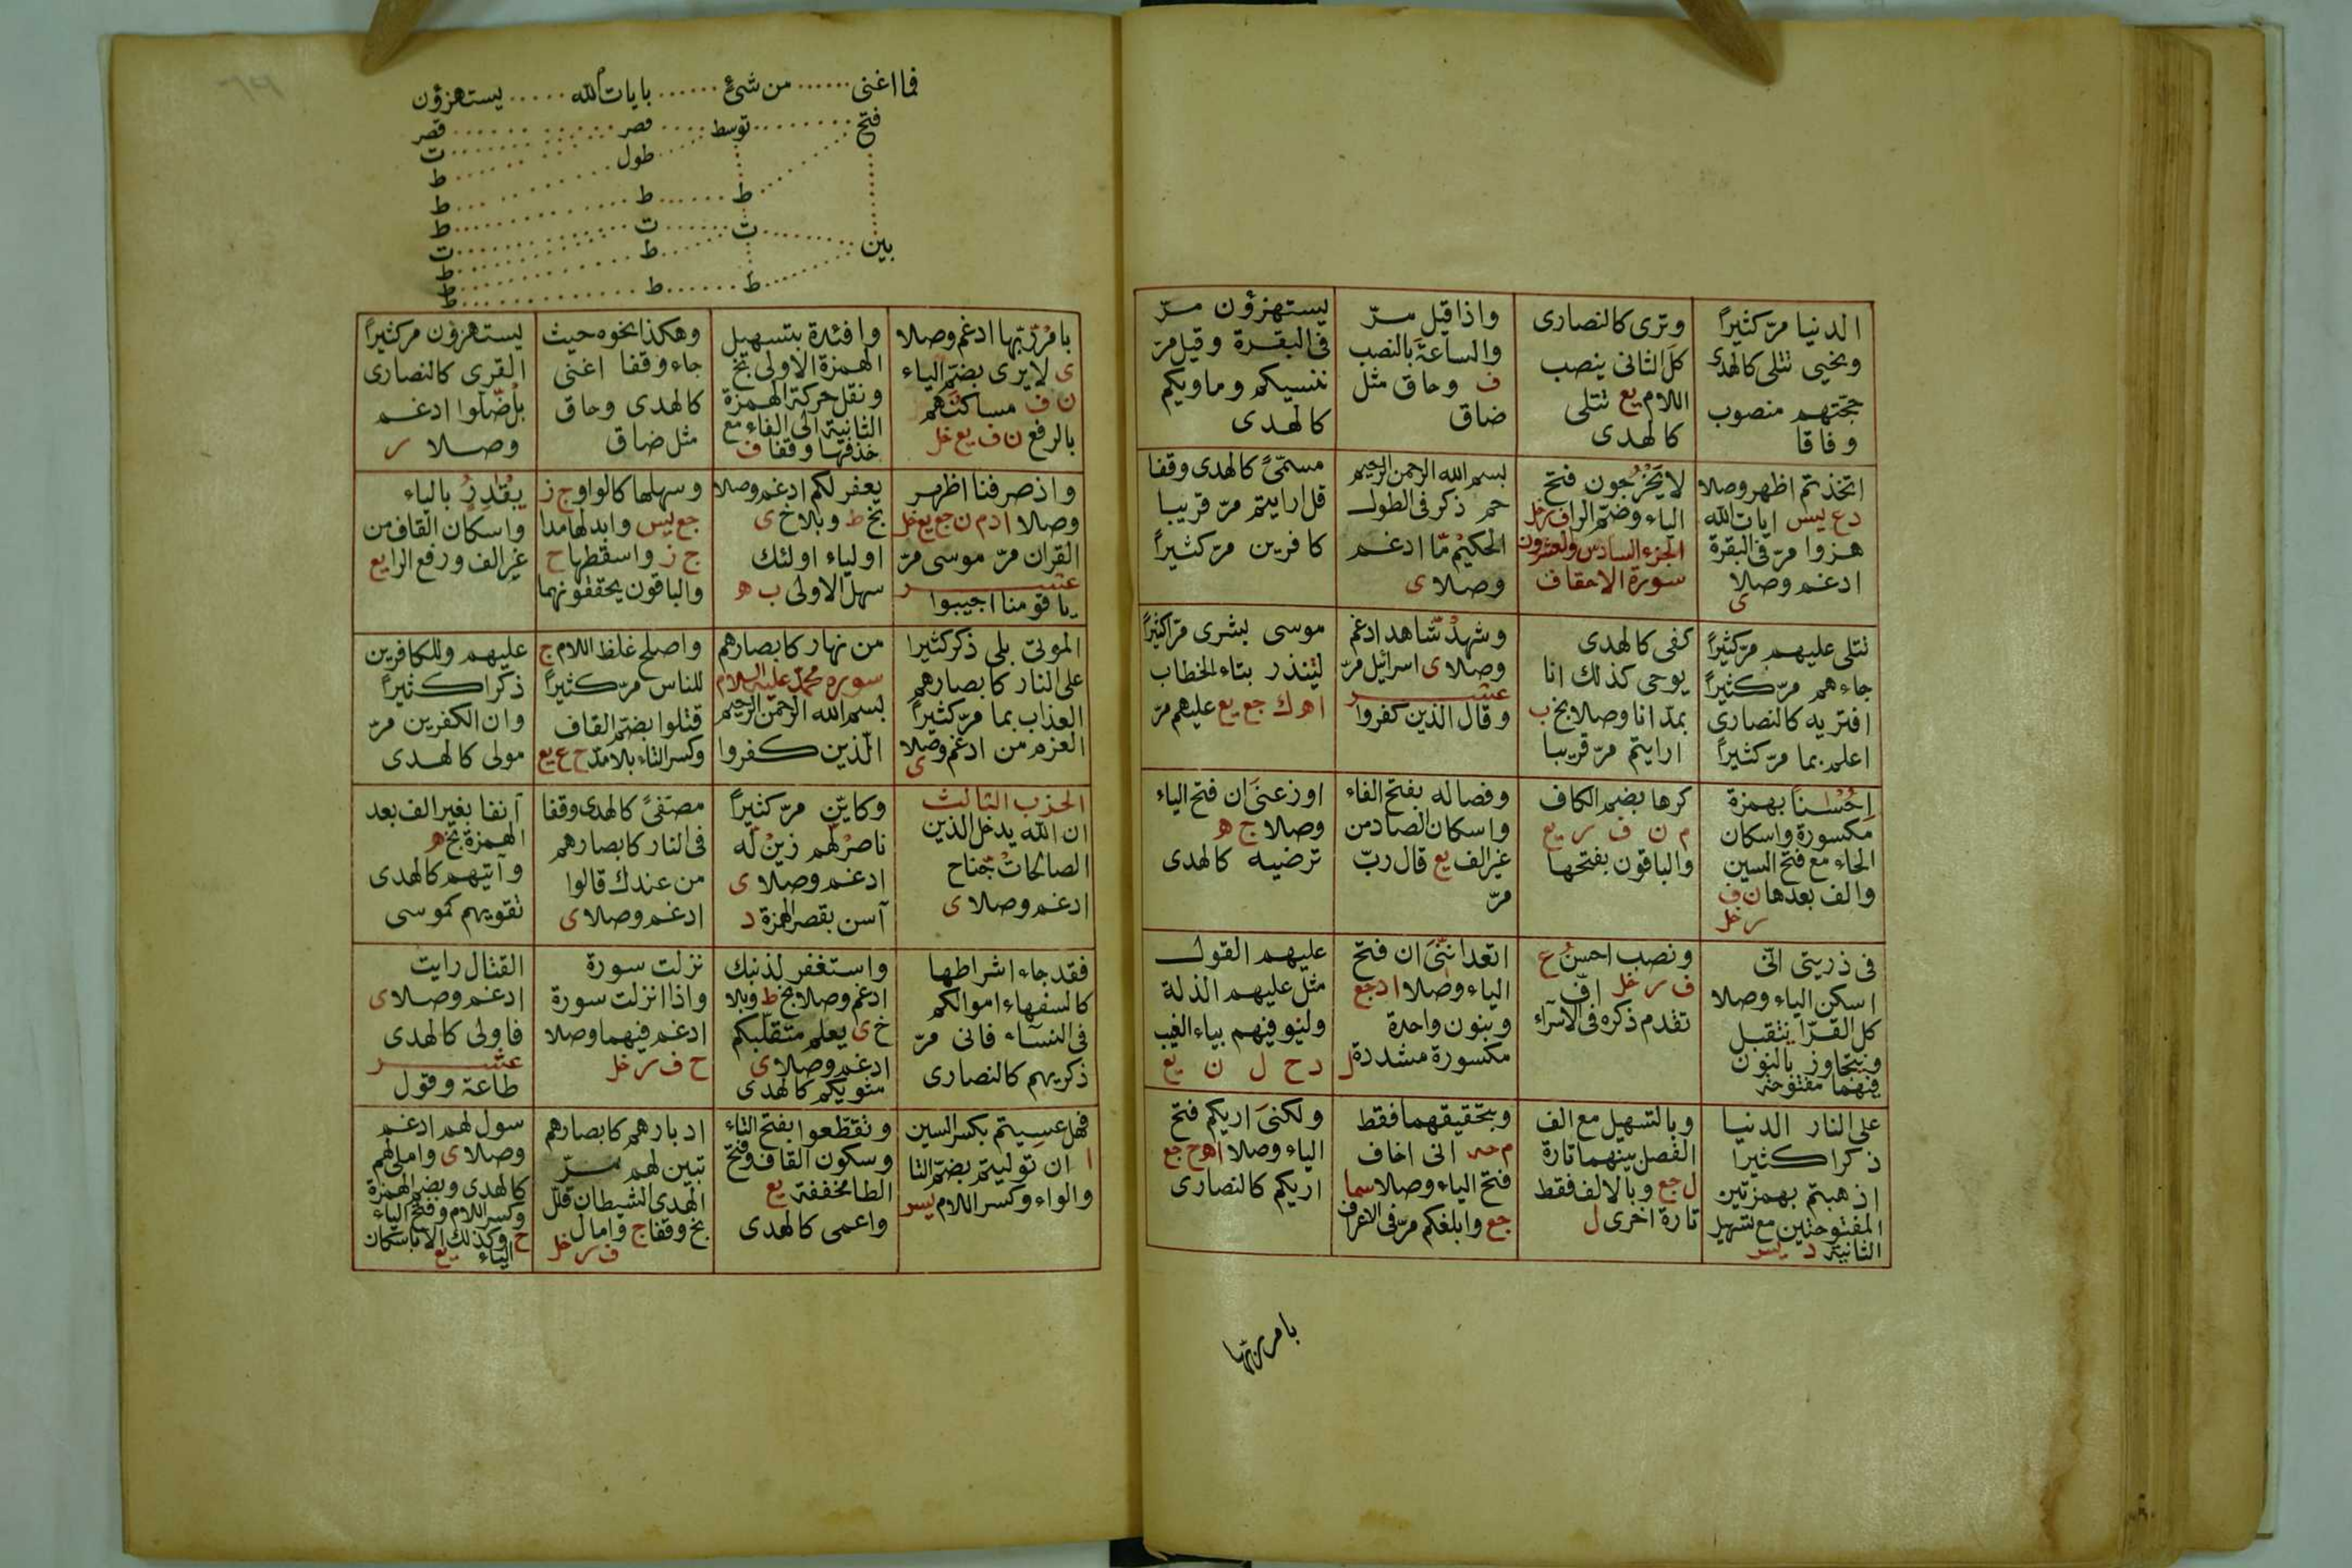 الدنيا مرّ كثيراً
ونحيى تتلى كالهدى
حجتهم منصوب
وفاقا
وترى كالنصارى
كل الثانى ينصب
اللام يع تتلى
كالهدى
واذا قيل مرّ
والساعة بالنصب
ف وحاق مثل
ضاق
يستهزؤن مرّ
فى البقرة وقيل مرّ
ننسيكم وماويكم
كالهدى
اتخذتم اظهر وصلا
دع يس ايات الله
هزوا مرّ فى البقرة
ادغم وصلا
ى
لا يخرجون فتح
الياء وضم الرا ف ر خل
الجزء السادس والعشرون
سورة الاحقاف
بسم الله الرحمن الرحيم
حم ذكر فى الطول
الحكيم ما ادغم
وصلا ى
مسمىً كالهدى وقفا
قل ارايتم مرّ قريبا
كافرين مرّ كثيراً
تتلى عليهم مرّ كثيراً
جاءهم مرّ كثيراً
افتريه كالنصارى
اعلم بما مرّ كثيراً
كفى كالهدى
يوحى كذلك انا
بمد انا وصلا بخ ب
ارايتم مرّ قريبا
وشهد شاهد ادغم
وصلا ى اسرائيل مرّ
عشر
وقال الذين كفروا
موسى بشرى مرّ كثيراً
لتنذر بتاء الخطاب
اهـ ك جع يع عليهم مرّ
احسنا بهمزة
مكسورة واسكان
الحاء مع فتح السين
والف بعدها ن ف
ر خل
كرها بضم الكاف
م ن ف ر يع
والباقون بفتحها
وفصاله بفتح الفاء
واسكان الصاد من
غير الف يع قال ربّ
مرّ
اوزعنى ان فتح الياء
وصلا ج هـ
ترضيه كالهدى
فى ذريتى انّى
اسكن الياء وصلا
كل القرّا يتقبل
ويتجاوز بالنون
فيهما مفتوحة
ونصب احسن ع
ف ر خل افّ
تقدم ذكره فى الاسراء
اتعدانّنى ان فتح
الياء وصلا ا د جع
وبنون واحدة
مكسورة مشددة ل
عليهم القول
مثل عليهم الذلة
وليوفيهم بياء الغيب
د ح ل ن يع
على النار الدنيا
ذكرا كثيرا
اذهبتم بهمزتين
المفتوحتين مع تسهيل
الثانية د يس
وبالتسهيل مع الف
الفصل بينهما تارة
ل جع وبالالف فقط
تارة اخرى ل
وبتحقيقهما فقط
م حـ انى اخاف
فتح الياء وصلا سما
جع وابلغكم مرّ فى الاعراف
ولكنى اريكم فتح
الياء وصلا ا هـ ح جع
اريكم كالنصارى
بامر ربها
فما اغنى ...... من شئ ...... بايات الله ..... يستهزؤن
فتح ...... توسط ..... قصر ..... قصر
ت
طول ط
ط
ط ..... ط ..... ط
بين ..... ت ..... ت ..... ت
ط ..... ط
ط
ط ..... ط ..... ط
بامر ربّها ادغم وصلا
ى لا يرى بضمّ الياء
ن ف مساكنهم
بالرفع ن ف يع خل
وافئدة بتسهيل
الهمزة الاولى بخ
ونقل حركة الهمزة
الثانية الى الفاء مع
حذفها وقفا ف
وهكذا نحوه حيث
جاء وقفا اغنى
كالهدى وحاق
مثل ضاق
يستهزؤن مرّ كثيراً
القرى كالنصارى
بل ضلوا ادغم
وصلا ر
واذ صرفنا اظهر
وصلا ا د م ن جع يع خل
القران مرّ موسى مرّ
عشر
يا قومنا اجيبوا
يغفر لكم ادغم وصلا
بخ ط وبلا خ ى
اولياء اولئك
سهل الاولى ب هـ
وسهلها كالواو ج ز
جع يس وابدلها مدا
ج ز واسقطها ح
والباقون يحققونهما
يقدر بالياء
واسكان القاف من
غير الف ورفع الرا يع
الموتى بلى ذكر كثيرا
على النار كابصارهم
العذاب بما مرّ كثيراً
العزم من ادغم وصلا
ى
من نهار كابصارهم
سورة محمد عليه السلام
بسم الله الرحمن الرحيم
الذين كفروا
واصلح غلظ اللام ج
للناس مرّ كثيراً
قتلوا بضم القاف
وكسر التاء بلا مدّ ح ع يع
عليهم وللكافرين
ذكرا كثيراً
وان الكفرين مرّ
مولى كالهدى
الحزب الثالث
ان الله يدخل الذين
الصالحات جناح
ادغم وصلا ى
وكايّن مرّ كثيراً
ناصر لهم زين له
ادغم وصلا ى
آسن بقصر الهمزة د
مصفىً كالهدى وقفا
فى النار كابصارهم
من عندك قالوا
ادغم وصلا ى
آنفا بغير الف بعد
الهمزة بخ هـ
وآتيهم كالهدى
تقويهم كموسى
فقد جاء اشراطها
كالسفهاء اموالكم
فى النساء فانى مرّ
ذكريهم كالنصارى
واستغفر لذنبك
ادغم وصلا بخ ط وبلا
خ ى يعلم متقلبكم
ادغم وصلا ى
مثويكم كالهدى
نزلت سورة
واذا انزلت سورة
ادغم فيهما وصلا
ح ف ر خل
القتال رايت
ادغم وصلا ى
فاولى كالهدى
عشر
طاعة وقول
فهل عسيتم بكسر السين
ا ان توليتم بضمّ التا
والواو وكسر اللام يس
وتقطّعوا بفتح التاء
وسكون القاف وفتح
الطا مخففة يع
واعمى كالهدى
ادبارهم كابصارهم
تبين لهم مرّ
الهدى الشيطان قلل
بخ وقفا ج وامال
ف ر خل
سول لهم ادغم
وصلا ى واملى لهم
كالهدى وبضم الهمزة
وكسر اللام وفتح الياء
ح وكذلك الا باسكان
الياء يع